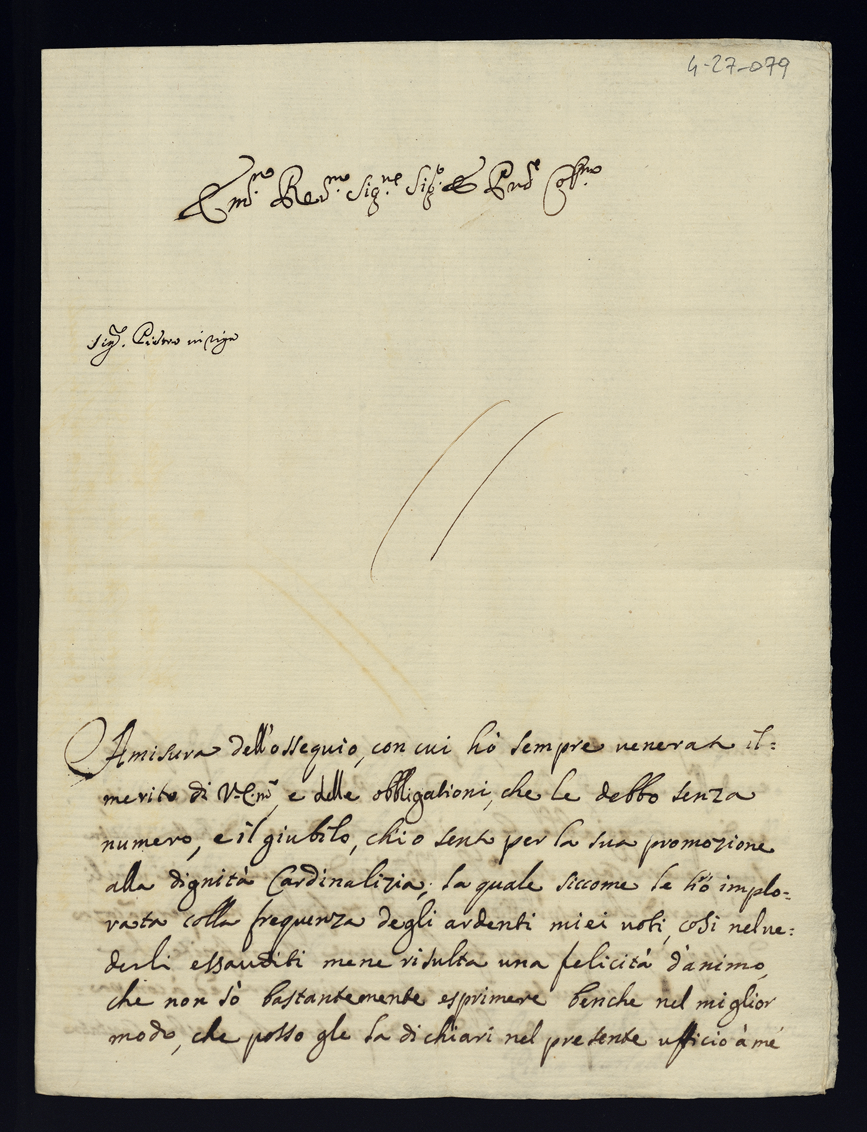 4-27-079
Em.mo Rev.mo Sig.re Sig.r e Prōe Col.mo
Sig.
Amisura dell'ossequio, con cui hò sempre venerato il=
merito di V. Em.a, e delle obbligationi, che le debbo senza
numero, e il giubilo, chio sento per la sua promozione
alla dignità Cardinalizia, la quale siccome le hò implo-
rata colla frequenza degli ardenti miei voti, così nel ve=
derli essauditi mene risulta una felicità d'animo,
che non sò bastantemente esprimere benche nel miglior
modo, che posso gle la dichiari nel presente ufficio à me